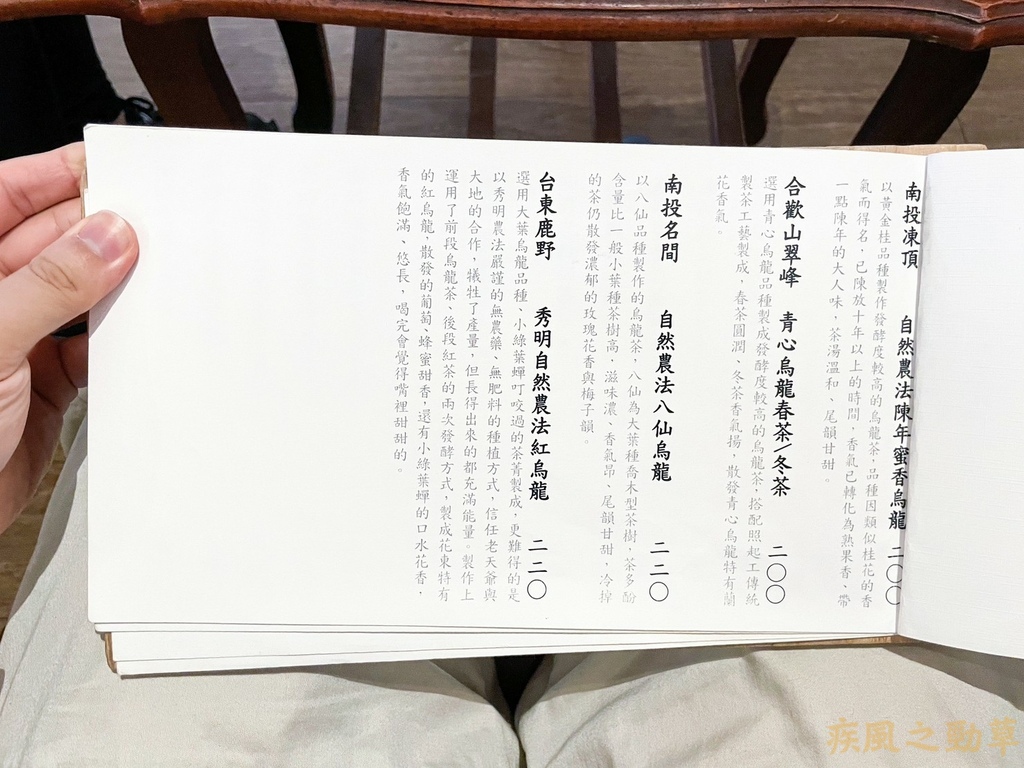 南投凍頂 自然農法陳年蜜香烏龍 二〇〇
以黃金桂品種製作發酵度較高的烏龍茶，品種因類似桂花的香
氣而得名，已陳放十年以上的時間，香氣已轉化為熟果香、帶
一點陳年的大人味，茶湯溫和、尾韻甘甜。
合歡山翠峰 青心烏龍春茶/冬茶 二〇〇
選用青心烏龍品種製成發酵度較高的烏龍茶，搭配照起工傳統
製茶工藝製成，春茶圓潤、冬茶香氣揚，散發青心烏龍特有蘭
花香氣。
南投名間 自然農法八仙烏龍 二二〇
以八仙品種製作的烏龍茶，八仙為大葉種喬木型茶樹，茶多酚
含量比一般小葉種茶樹高，滋味濃、香氣昂、尾韻甘甜，冷掉
的茶仍散發濃郁的玫瑰花香與梅子韻。
台東鹿野 秀明自然農法紅烏龍 二二〇
選用大葉烏龍品種、小綠葉蟬叮咬過的茶菁製成，更難得的是
以秀明農法嚴謹的無農藥、無肥料的種植方式，信任老天爺與
大地的合作，犧牲了產量，但長得出來的都充滿能量。製作上
運用了前段烏龍茶、後段紅茶的兩次發酵方式，製成花東特有
的紅烏龍，散發的葡萄、蜂蜜甜香，還有小綠葉蟬的口水花香，
香氣飽滿、悠長，喝完會覺得嘴裡甜甜的。
疾風之勁草